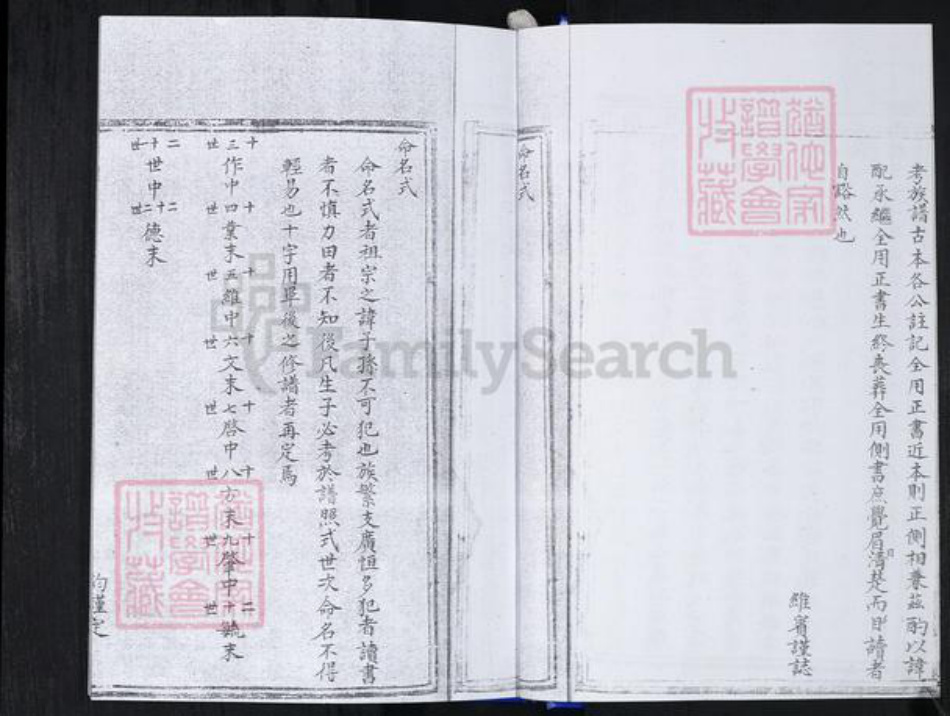 考族譜古本各公註記全用正書近本則正側相兼茲酌以諱
配承繼全用正書生終喪葬全用側書庶覺眉清楚而讀者
自豁然也
維賓謹誌
命名式
命名式
命名式者祖宗之諱子孫不可犯也族繁支廣恒多犯者讀書
者不慎力田者不知後凡生子必考於譜照式世次命名不得
輕易也十字用畢後之修譜者再定焉
十三世作中十四世業末十五世維中十六世文末十七世啓中十八世方末十九世肇中二十世毓末
二十世世中二十二世德末
均謹定
譜學會
藏
譜學會
藏
FamilySearch